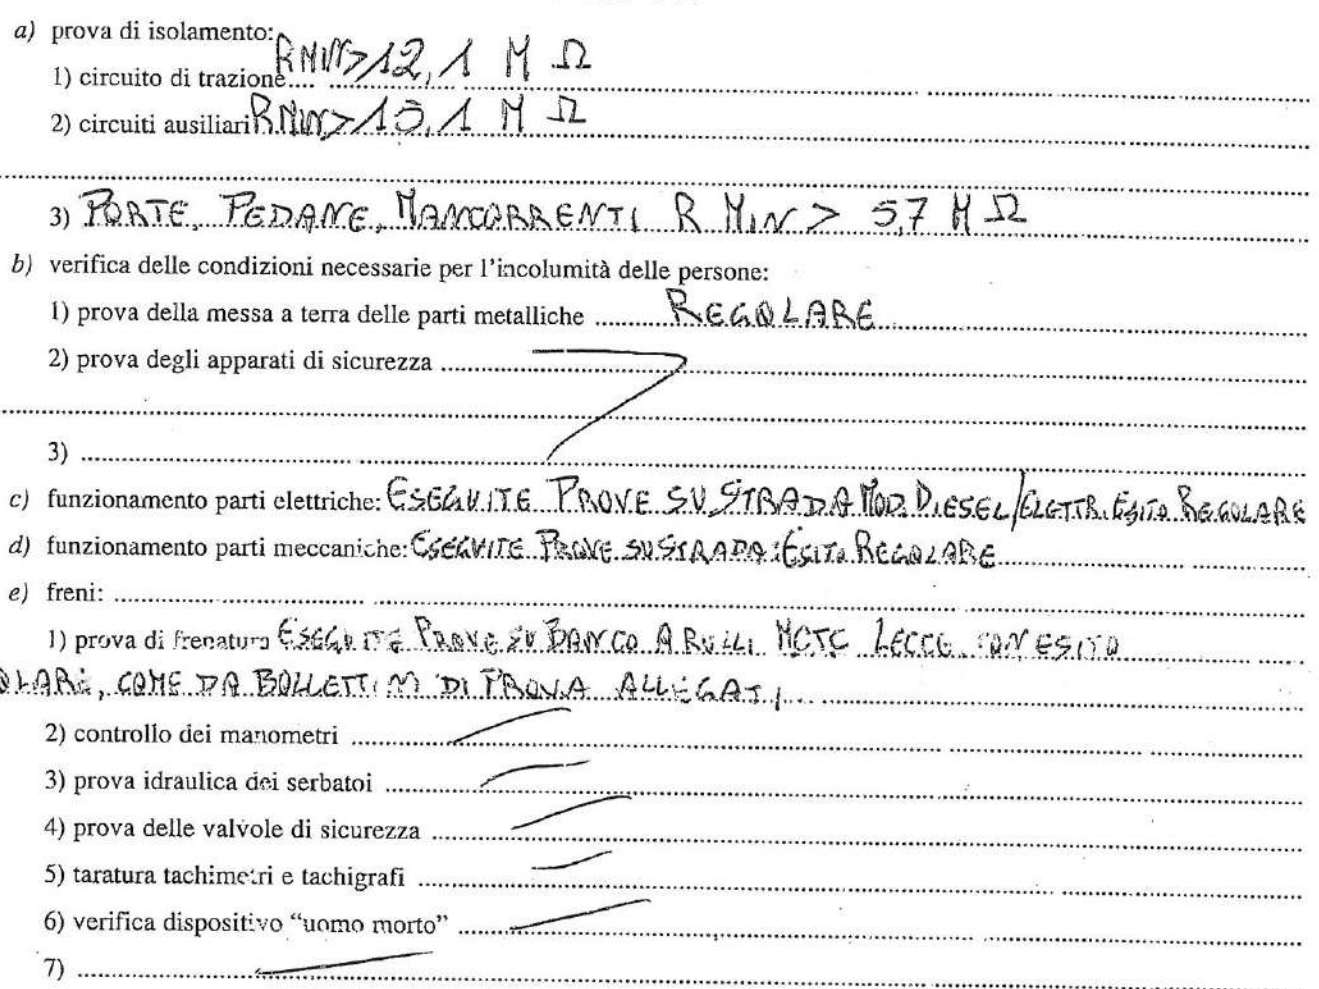 a) prova di isolamento:
1) circuito di trazione.... RMIN>12,1 M Ω
2) circuiti ausiliari RMIN> , 1 M Ω
3) PORTE, PEDANE, MANCORRENTI R MIN > 5,7 M Ω
b) verifica delle condizioni necessarie per l'incolumità delle persone:
1) prova della messa a terra delle parti metalliche ......... REGOLARE
2) prova degli apparati di sicurezza
3)
c) funzionamento parti elettriche: ESEGUITE PROVE SU STRADA MOD. DIESEL/ELETTR. ESITO REGOLARE
d) funzionamento parti meccaniche: ESEGUITE PROVE SU STRADA: ESITO REGOLARE
e) freni:
1) prova di frenatura ESEGUITE PROVE SU BANCO A RULLI MCTC LECCE CON ESITO
OLARE, COME DA BOLLETTINI DI PROVA ALLEGATI
2) controllo dei manometri
3) prova idraulica dei serbatoi
4) prova delle valvole di sicurezza
5) taratura tachimetri e tachigrafi
6) verifica dispositivo “uomo morto”
7)